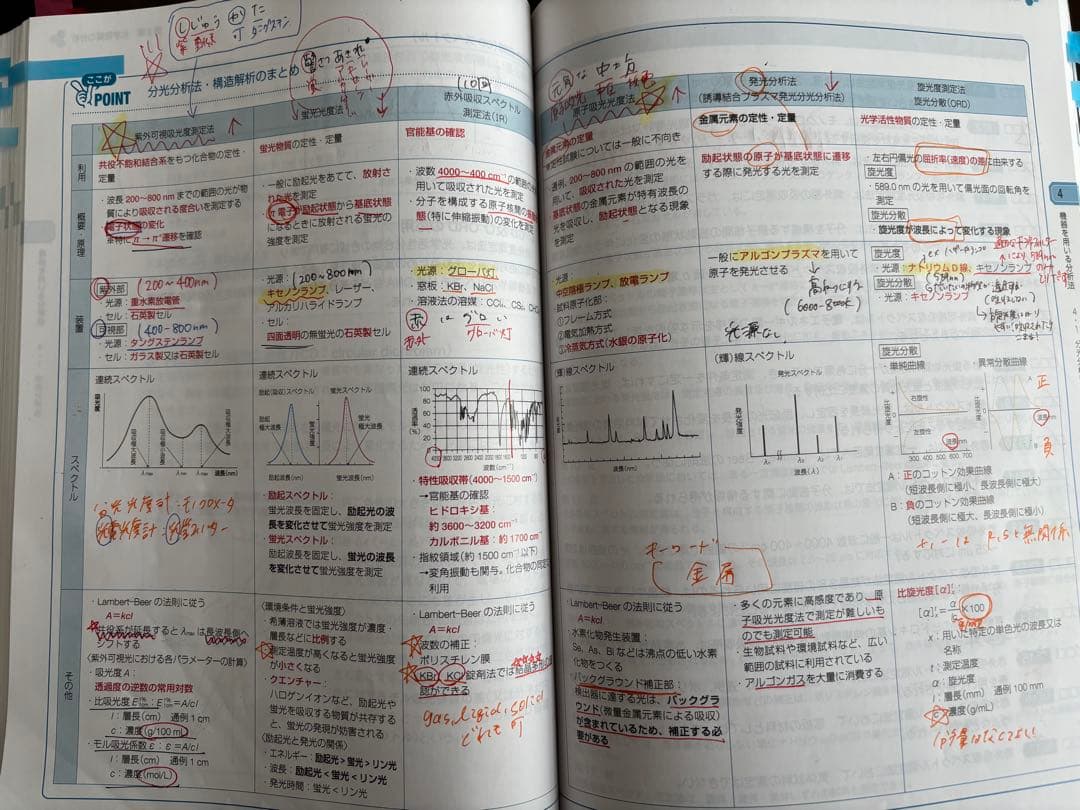 ここが
POINT
分光分析法・構造解析のまとめ
紫外可視吸光度測定法
蛍光光度法
赤外吸収スペクトル
測定法(IR)
原子吸光光度法
発光分析法
(誘導結合プラズマ発光分光分析法)
旋光度測定法
旋光分散(ORD)
利用
共役不飽和結合系をもつ化合物の定性・
定量
蛍光物質の定性・定量
官能基の確認
金属元素の定量
定性試験については一般に不向き
金属元素の定性・定量
光学活性物質の定性・定量
概要・原理
・波長 200~800 nm までの範囲の光が物
質により吸収される度合いを測定する
電子状態の変化
n → π*遷移を確認
・一般に励起光をあてて、放射さ
れた光を測定
π電子が励起状態から基底状態
になるときに放射される蛍光の
強度を測定
・波数 4000~400 cm⁻¹ の範囲の
用いて吸収された光を測定
・分子を構成する原子核間の
態(特に伸縮振動)の変化を測定
通例、200~800 nm の範囲の光を
用いて、吸収された光を測定
基底状態の金属元素が特有波長の
光を吸収し、励起状態となる現象
を測定
励起状態の原子が基底状態に遷移
する際に発光する光を測定
・左右円偏光の屈折率(速度)の差に由来する
旋光度
・589.0 nm の光を用いて偏光面の回転角を
測定
旋光分散
・旋光度が波長によって変化する現象
装置
紫外部 (200~400nm)
・光源:重水素放電管
・セル:石英製セル
可視部 (400-800nm)
・光源:タングステンランプ
・セル:ガラス製又は石英製セル
・光源:(200~800nm)
キセノンランプ、レーザー、
アルカリハライドランプ
・セル:
四面透明の無蛍光の石英製セル
・光源:グローバ灯
・窓板:KBr、NaCl
・溶液法の溶媒:CCl₄、CS₂、CHCl
赤はグロい
赤外 グローバ灯
・光源:
中空陰極ランプ、放電ランプ
・試料原子化部:
①フレーム方式
②電気加熱方式
③冷蒸気方式(水銀の原子化)
一般にアルゴンプラズマを用いて
原子を発光させる
(6000-8000K)
光源なし
旋光度
・光源:ナトリウムD線、キセノンランプ
旋光分散
・光源:キセノンランプ
スペクトル
連続スペクトル
吸光度
吸収極大波長
吸収極小波長
吸収極大波長
λmax λmin λmax 波長(nm)
連続スペクトル
励起(吸収)スペクトル 蛍光スペクトル
励起
極大波長
蛍光強度
蛍光
極大波長
励起波長(nm) 蛍光波長(nm)
・励起スペクトル:
蛍光波長を固定し、励起光の波
長を変化させて蛍光強度を測定
・蛍光スペクトル:
励起波長を固定し、蛍光の波長
を変化させて蛍光強度を測定
連続スペクトル
透過率(%)
波数(cm⁻¹)
・特性吸収帯(4000~1500 cm⁻¹)
→官能基の確認
ヒドロキシ基:
約 3600~3200 cm⁻¹
カルボニル基:約 1700 cm⁻¹
・指紋領域(約 1500 cm⁻¹ 以下)
→変角振動も関与。化合物の同定に
利用
(輝)線スペクトル
(輝)線スペクトル
発光スペクトル
発光強度
波長(λ)
キーワード
金属
旋光分散
・単純曲線 ・異常分散曲線
比旋光度
右旋性
左旋性
300 400 500 600 700
波長nm
正
負
A:正のコットン効果曲線
(短波長側に極小、長波長側に極大)
B:負のコットン効果曲線
(短波長側に極大、長波長側に極小)
+,- は R,Sと無関係
その他
・Lambert-Beer の法則に従う
A=kcl
共役系が延長するとλmaxは長波長側へ
シフトする
〈紫外可視光における各パラメーターの計算〉
・吸光度 A:
透過度の逆数の常用対数
l:層長(cm) 通例 1 cm
c:濃度(g/100 mL)
・モル吸光係数 ε:ε=A/cl
l:層長(cm) 通例 1 cm
c:濃度(mol/L)
〈環境条件と蛍光強度〉
・希薄溶液では蛍光強度が濃度・
層長などに比例する
・測定温度が高くなると蛍光強度
が小さくなる
・クエンチャー:
ハロゲンイオンなど、励起光や
蛍光を吸収する物質が共存する
と、蛍光の発現が妨害される
〈励起光と発光の関係〉
・エネルギー:励起光>蛍光>リン光
・波長:励起光<蛍光<リン光
・発光時間:蛍光<リン光
・Lambert-Beer の法則に従う
A=kcl
・波数の補正:
ポリスチレン膜
KBr、KCl 錠剤法では結晶多形の
認ができる
gas, liquid, solid
どれも可
・Lambert-Beer の法則に従う
A=kcl
・水素化物発生装置:
Se、As、Bi などは沸点の低い水素
化物をつくる
・バックグラウンド補正部:
検出器に達する光は、バックグラ
ウンド(微量金属元素による吸収)
が含まれているため、補正する必
要がある
・多くの元素に高感度であり、原
子吸光光度法で測定が難しいも
のでも測定可能
・生物試料や環境試料など、広い
範囲の試料に利用されている
・アルゴンガスを大量に消費する
比旋光度[α]:
x:用いた特定の単色光の波長又は
名称
t:測定温度
α:旋光度
l:層長(mm) 通例 100 mm
c:濃度(g/mL)
4
機器を用いる分析法